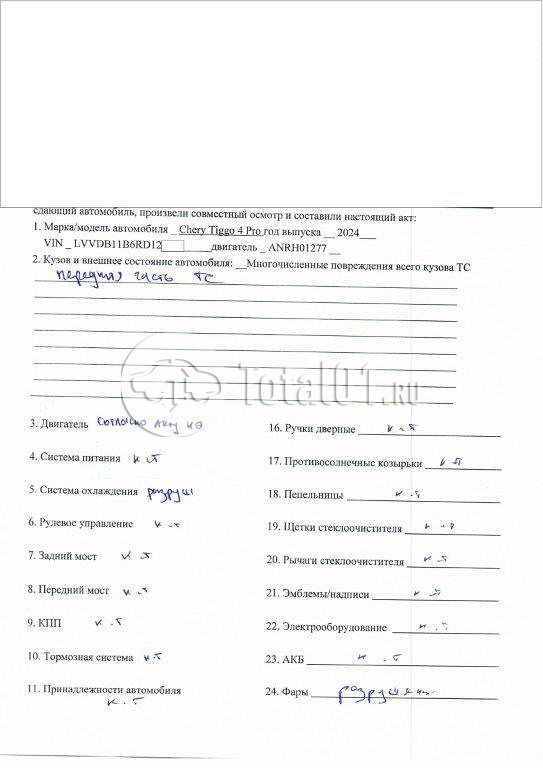 сдающий автомобиль, произвели совместный осмотр и составили настоящий акт:
1. Марка/модель автомобиля _ Chery Tiggo 4 Pro год выпуска __ 2024___
VIN _ LVVDB11B6RD12 _____двигатель _ ANRH01277 __
2. Кузов и внешнее состояние автомобиля: __Многочисленные повреждения всего кузова ТС
передняя часть ТС
Total01.RU
3. Двигатель согласно Акту
4. Система питания к.т
5. Система охлаждения разруш
6. Рулевое управление к.т
7. Задний мост к.т
8. Передний мост к.т
9. КПП к.т
10. Тормозная система к.т
11. Принадлежности автомобиля
к.т
16. Ручки дверные к.т
17. Противосолнечные козырьки к.т
18. Пепельницы к.т
19. Щетки стеклоочистителя к.т
20. Рычаги стеклоочистителя к.т
21. Эмблемы/надписи к.т
22. Электрооборудование к.т
23. АКБ к.т
24. Фары разрушены